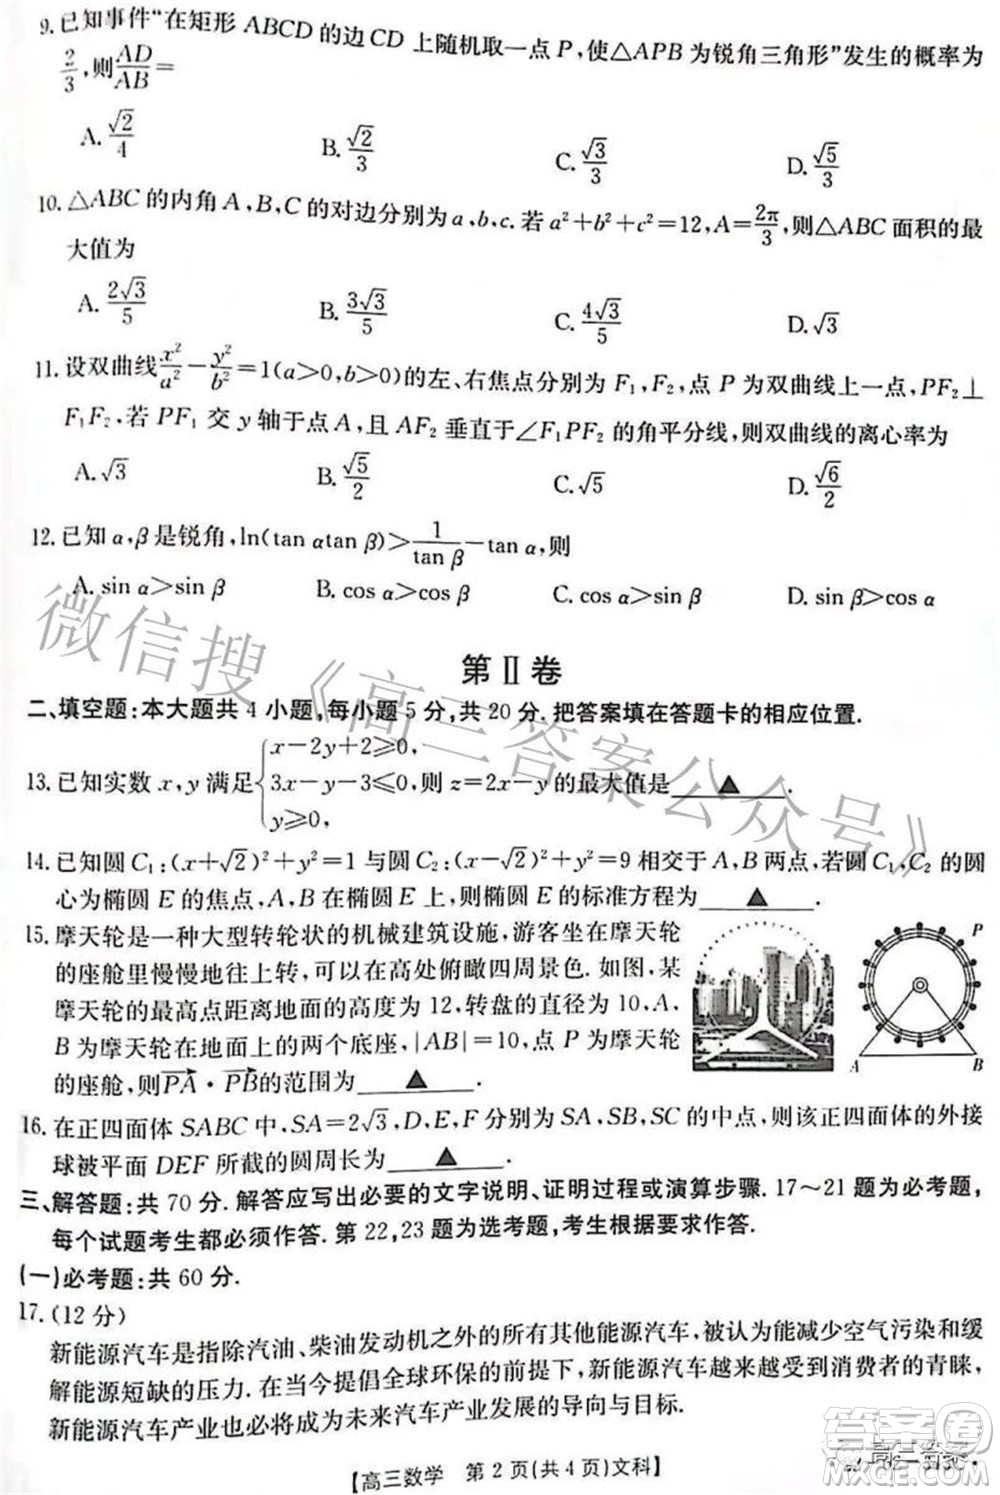 9. 已知事件“在矩形 ABCD 的边 CD 上随机取一点 P, 使△APB 为锐角三角形”发生的概率为
2/3, 则 AD/AB =
A. √2/4 B. √2/3 C. √3/3 D. √5/3
10. △ABC 的内角 A, B, C 的对边分别为 a, b, c. 若 a²+b²+c²=12, A=2π/3, 则△ABC 面积的最
大值为
A. 2√3/5 B. 3√3/5 C. 4√3/5 D. √3
11. 设双曲线 x²/a² − y²/b² =1(a>0, b>0) 的左、右焦点分别为 F₁, F₂, 点 P 为双曲线上一点, PF₂⊥
F₁F₂, 若 PF₁ 交 y 轴于点 A, 且 AF₂ 垂直于∠F₁PF₂ 的角平分线, 则双曲线的离心率为
A. √3 B. √5/2 C. √5 D. √6/2
12. 已知 α, β 是锐角, ln(tan αtan β)> 1/tan β −tan α, 则
A. sin α>sin β B. cos α>cos β C. cos α>sin β D. sin β>cos α
第Ⅱ卷
二、填空题:本大题共 4 小题,每小题 5 分,共 20 分. 把答案填在答题卡的相应位置.
13. 已知实数 x, y 满足 { x−2y+2≥0, 3x−y−3≤0, y≥0, 则 z=2x−y 的最大值是 ▲ .
14. 已知圆 C₁:(x+√2)²+y²=1 与圆 C₂:(x−√2)²+y²=9 相交于 A, B 两点, 若圆 C₁, C₂ 的圆
心为椭圆 E 的焦点, A, B 在椭圆 E 上, 则 E 的标准方程为 ▲ .
15. 摩天轮是一种大型转轮状的机械建筑设施, 游客坐在摩天轮
的座舱里慢慢地往上转, 可以在高处俯瞰四周景色. 如图, 某
摩天轮的最高点距离地面的高度为 12, 转盘的直径为 10, A,
B 为摩天轮在地面上的两个底座, |AB|=10, 点 P 为摩天轮
的座舱, 则 PA→ · PB→ 的范围为 ▲ .
P
A B
16. 在正四面体 SABC 中, SA=2√3, D, E, F 分别为 SA, SB, SC 的中点, 则该正四面体的外接
球被平面 DEF 所截的圆周长为 ▲ .
三、解答题:共 70 分. 解答应写出必要的文字说明、证明过程或演算步骤. 17～21 题为必考题,
每个试题考生都必须作答. 第 22,23 题为选考题, 考生根据要求作答.
(一)必考题:共 60 分.
17. (12 分)
新能源汽车是指除汽油、柴油发动机之外的所有其他能源汽车, 被认为能减少空气污染和缓
解能源短缺的压力. 在当今提倡全球环保的前提下, 新能源汽车越来越受到消费者的青睐,
新能源汽车产业也必将成为未来汽车产业发展的导向与目标.
【高三数学 第 2 页(共 4 页)文科】
微信搜《高三答案公众号》
答案圈
MXQE.COM